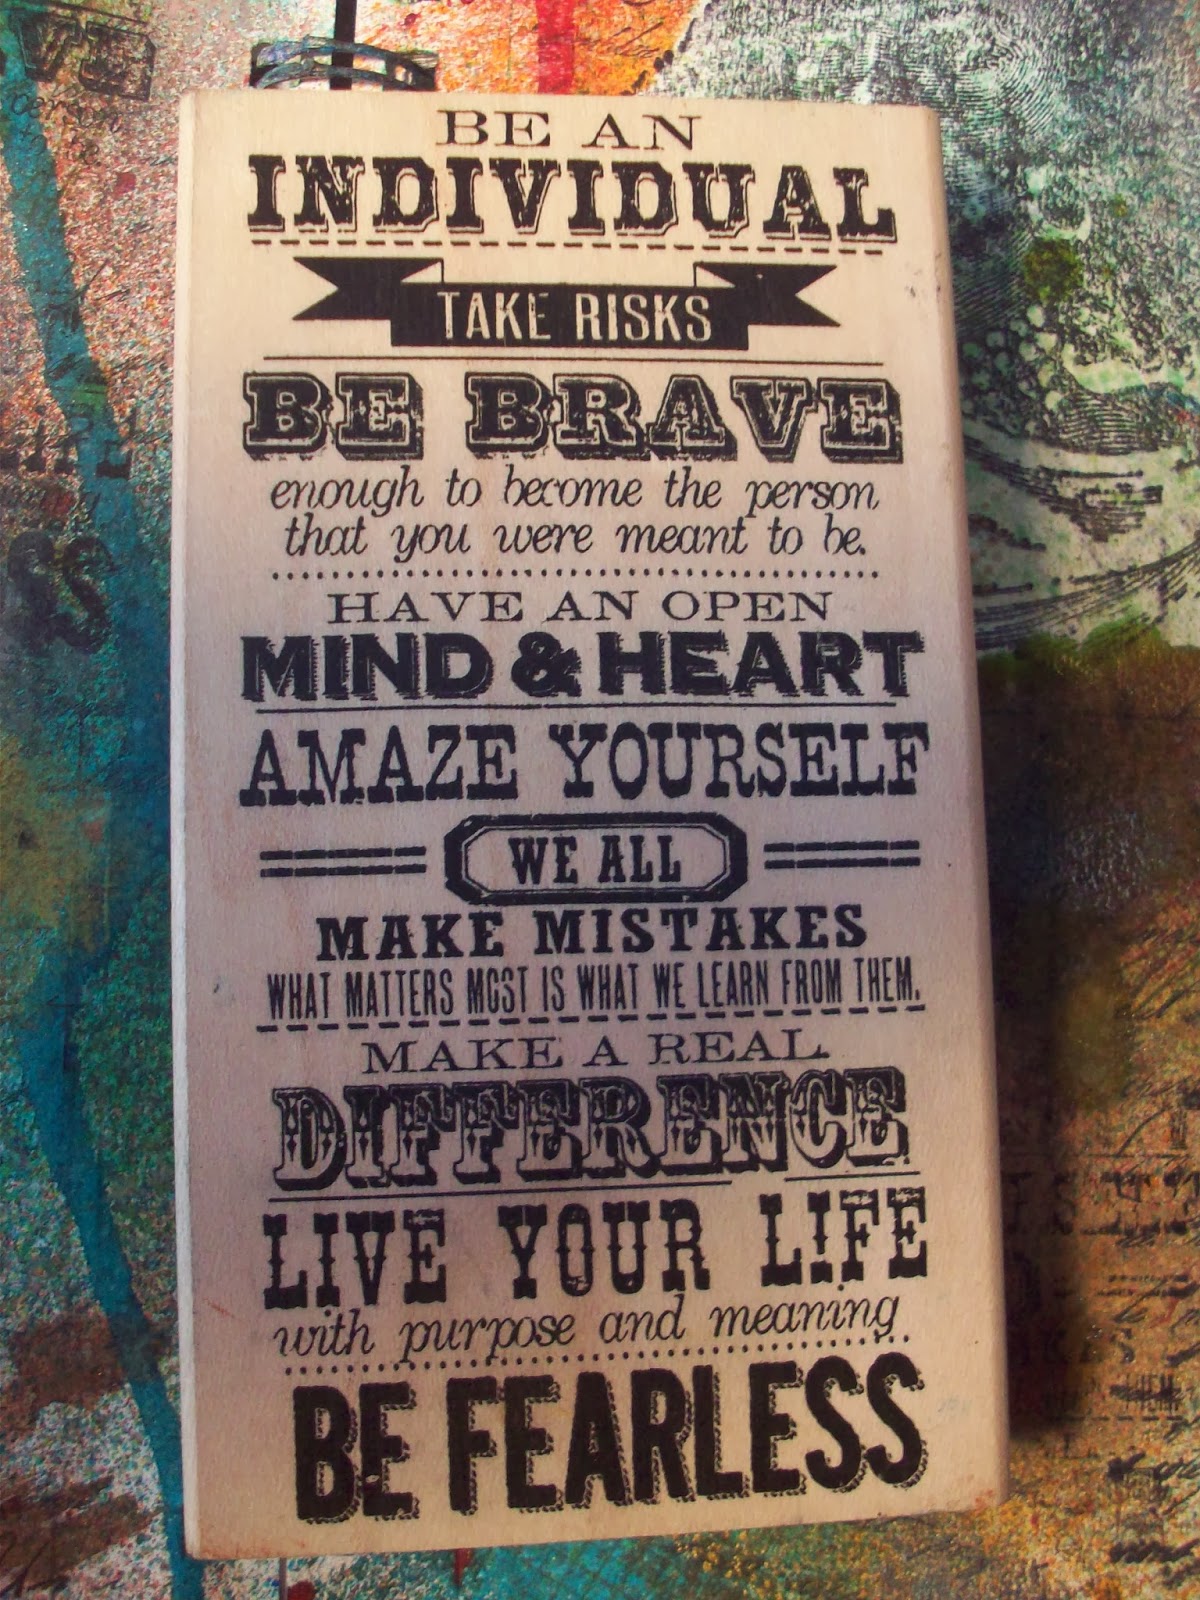 BE AN
INDIVIDUAL
TAKE RISKS
BE BRAVE
enough to become the person
that you were meant to be.
HAVE AN OPEN
MIND & HEART
AMAZE YOURSELF
WE ALL
MAKE MISTAKES
WHAT MATTERS MOST IS WHAT WE LEARN FROM THEM.
MAKE A REAL
DIFFERENCE
LIVE YOUR LIFE
with purpose and meaning
BE FEARLESS